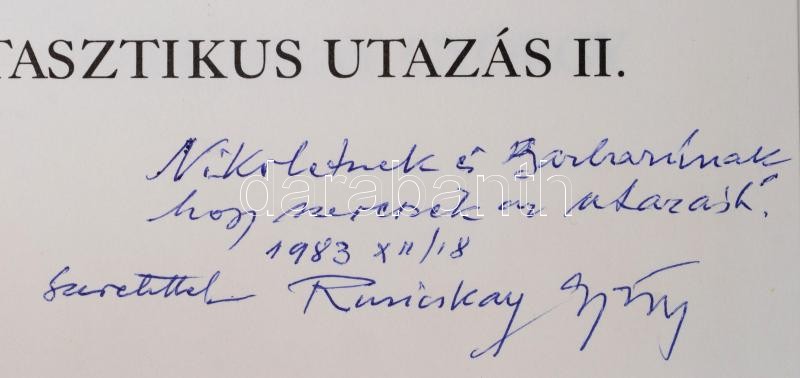 TASZTIKUS UTAZÁS II.
Nikolettnek és Barbarának
hogy szeressék az utazást.
1983 XII/18
Szeretettel Rusicskay György
darabanth